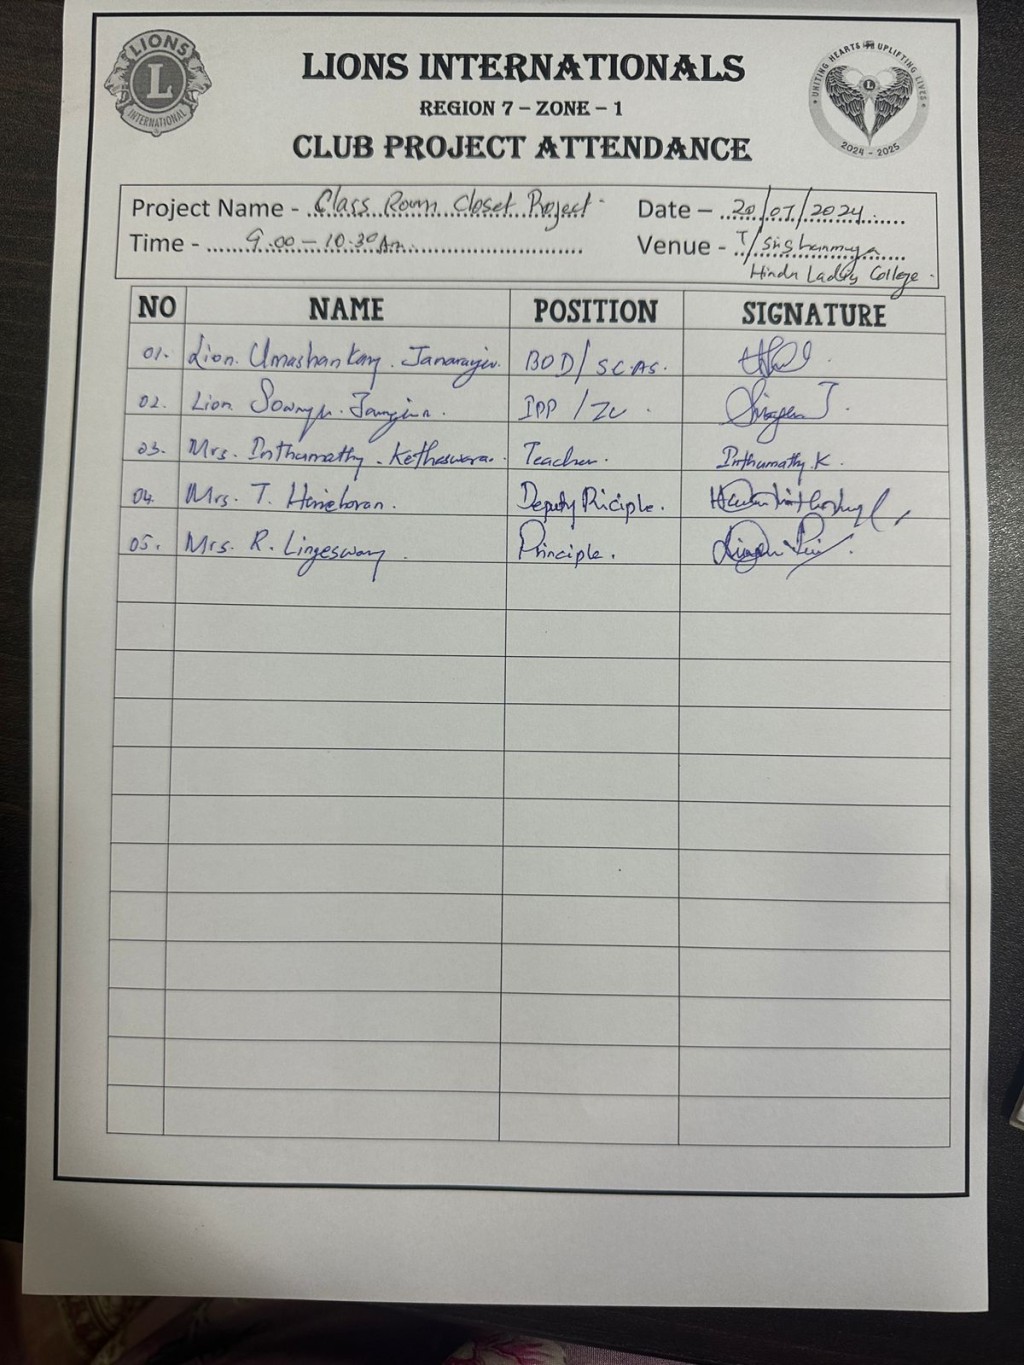 LIONS INTERNATIONAL
L
UNITING HEARTS UPLIFTING LIVES
2024 - 2025
LIONS INTERNATIONALS
REGION 7 – ZONE – 1
CLUB PROJECT ATTENDANCE
Project Name - Class Room Closet Project. Date – 20/07/2024
Time - 9.00 – 10.30 Am. Venue - T/
Hindu Ladies College.
NO NAME POSITION SIGNATURE
01. Lion. Umashankary. BOD/ SCAS.
02. Lion IPP / ZC.
03. Mrs. Inthumathy. Ketheswara. Teacher. Inthumathy K.
04. Mrs. T. Deputy Priciple.
05. Mrs. R. Lingeswary. Principle.